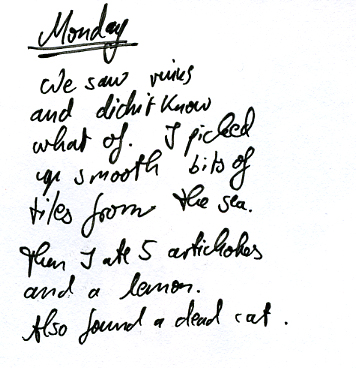 Monday
We saw ruins
and didn't know
what of. I picked
up smooth bits of
tiles from the sea.
Then I ate 5 artichokes
and a lemon.
Also found a dead cat.